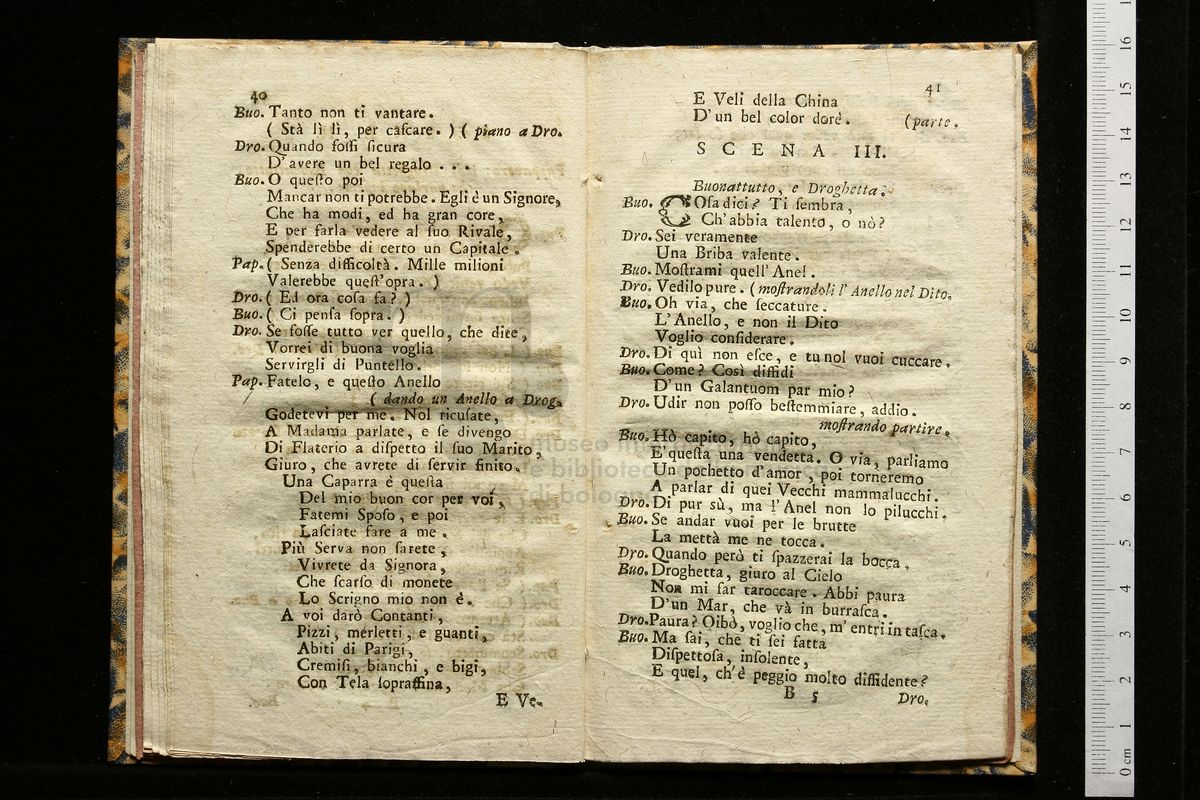 40
Buo. Tanto non ti vantare.
( Stà lì lì, per caſcare. ) ( piano a Dro.
Dro. Quando foſſi ſicura
D'avere un bel regalo . . .
Buo. O queſto poi
Mancar non ti potrebbe. Egli è un Signore,
Che ha modi, ed ha gran core,
E per farla vedere al ſuo Rivale,
Spenderebbe di certo un Capitale.
Pap. ( Senza difficoltà. Mille milioni
Valerebbe queſt'opra. )
Dro. ( Ed ora coſa fa? )
Buo. ( Ci penſa ſopra. )
Dro. Se foſſe tutto ver quello, che dite,
Vorrei di buona voglia
Servirgli di Puntello.
Pap. Fatelo, e queſto Anello
( dando un Anello a Drog.
Godetevi per me. Nol ricuſate,
A Madama parlate, e ſe divengo
Di Flaterio a diſpetto il ſuo Marito,
Giuro, che avrete di ſervir finito.
Una Caparra è queſta
Del mio buon cor per voi,
Fatemi Spoſo, e poi
Laſciate fare a me.
Più Serva non ſarete,
Vivrete da Signora,
Che ſcarſo di monete
Lo Scrigno mio non è.
A voi darò Contanti,
Pizzi, merletti, e guanti,
Abiti di Parigi,
Cremiſi, bianchi, e bigi,
Con Tela ſopraffina,
E Ve-
41
E Veli della China
D'un bel color dorè. (parte.
SCENA III.
Buonattutto, e Droghetta.
Buo. COſa dici? Ti ſembra,
Ch'abbia talento, o nò?
Dro. Sei veramente
Una Briba valente.
Buo. Moſtrami quell'Anel.
Dro. Vedilo pure. (moſtrandoli l'Anello nel Dito.
Buo. Oh via, che ſeccature.
L'Anello, e non il Dito
Voglio conſiderare.
Dro. Di quì non eſce, e tu nol vuoi cuccare.
Buo. Come? Così diffidi
D'un Galantuom par mio?
Dro. Udir non poſſo beſtemmiare, addio.
moſtrando partire.
Buo. Hò capito, hò capito,
E' queſta una vendetta. O via, parliamo
Un pochetto d'amor, poi torneremo
A parlar di quei Vecchi mammalucchi.
Dro. Di pur sù, ma l'Anel non lo pilucchi.
Buo. Se andar vuoi per le brutte
La mettà me ne tocca.
Dro. Quando però ti ſpazzerai la bocca.
Buo. Droghetta, giuro al Cielo
Non mi far taroccare. Abbi paura
D'un Mar, che và in burraſca.
Dro. Paura? Oibò, voglio che, m'entri in taſca.
Buo. Ma ſai, che ti ſei fatta
Diſpettoſa, inſolente,
E quel, ch'è peggio molto diffidente?
B 5 Dro.
museo
e biblioteca
di bolo
0 cm 1 2 3 4 5 6 7 8 9 10 11 12 13 14 15 16